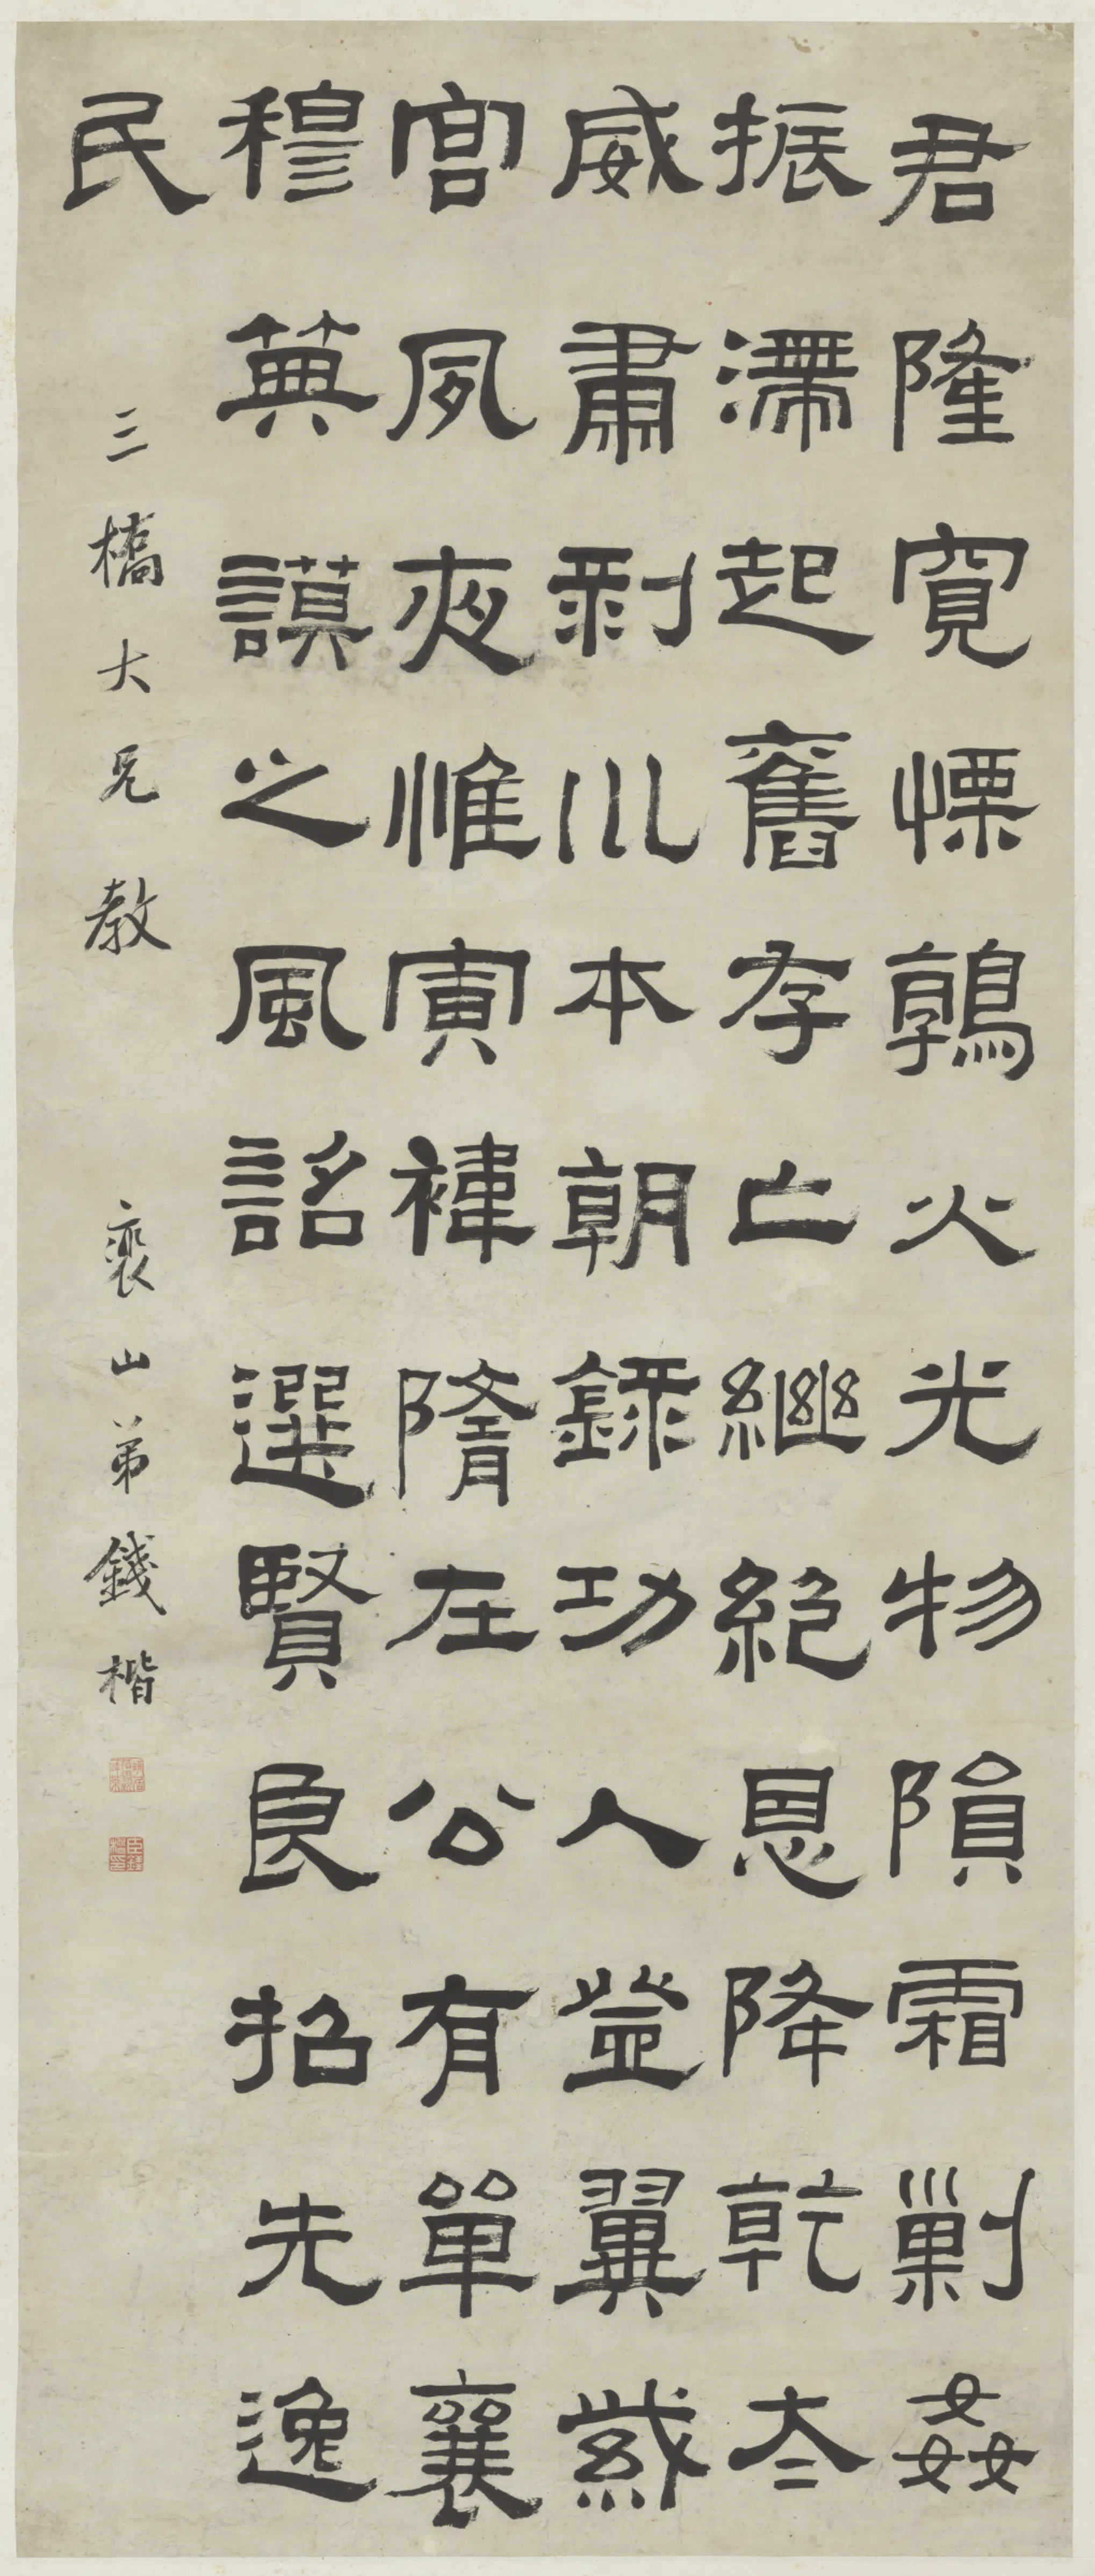 君隆寬慄鶉火光物隕霜剿姦
振滯起舊存亡繼絕恩降乾夳
威肅剥川本朝錄功入登翼紫
宮夙夜惟寅褘隋在公有單襄
穆䔥謨之風詔選賢良招先逸
民
三橋大兄教
裴山弟錢楷